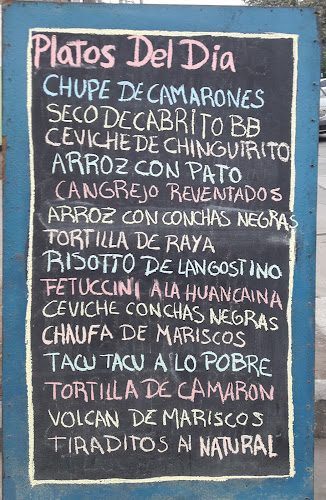 Platos Del Dia
CHUPE DE CAMARONES
SECO DE CABRITO BB
CEVICHE DE CHINGUIRITO
ARROZ CON PATO
CANGREJO REVENTADOS
ARROZ CON CONCHAS NEGRAS
TORTILLA DE RAYA
RISOTTO DE LANGOSTINO
FETUCCINI A LA HUANCAINA
CEVICHE CONCHAS NEGRAS
CHAUFA DE MARISCOS
TACU TACU A LO POBRE
TORTILLA DE CAMARON
VOLCAN DE MARISCOS
TIRADITOS Al NATURAL